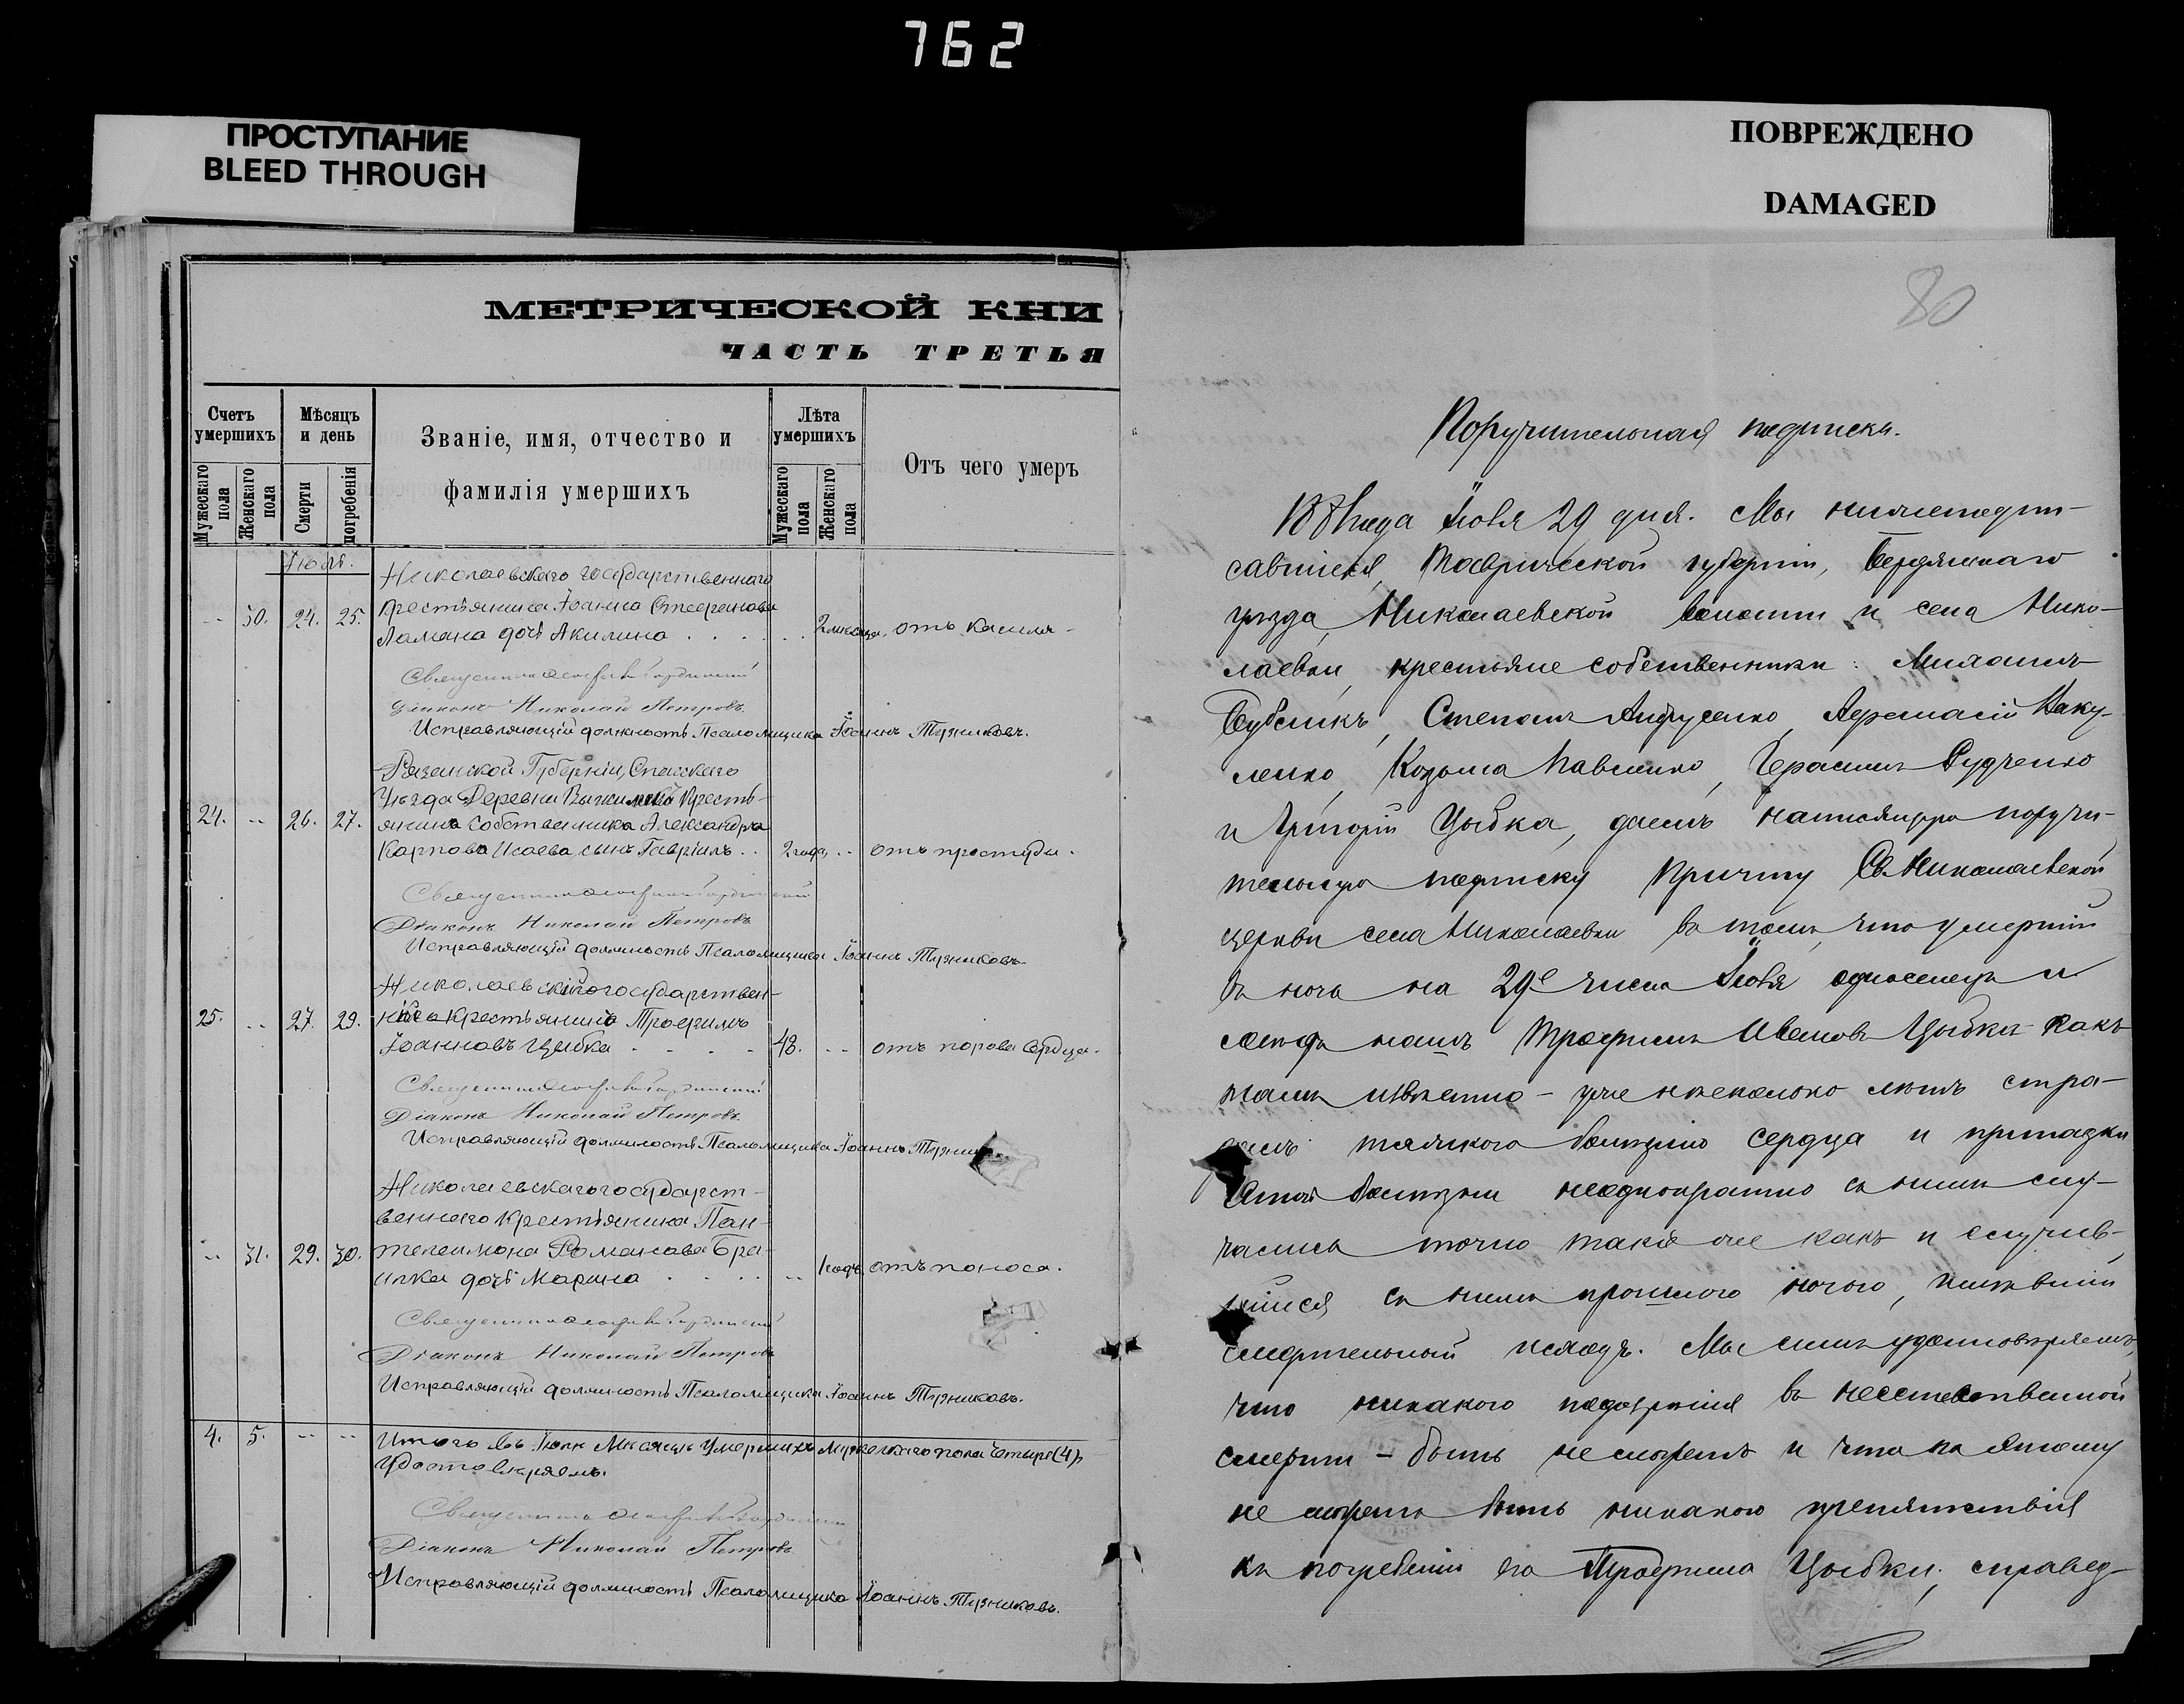 762
ПРОСТУПАНИЕ
BLEED THROUGH
ПОВРЕЖДЕНО
DAMAGED
МЕТРИЧЕСКОЙ КНИ
ЧАСТЬ ТРЕТЬЯ
Счетъ умершихъ
Мѣсяцъ и день
Званіе, имя, отчество и фамилія умершихъ
Лѣта умершихъ
Отъ чего умеръ
Мужескаго пола
Женскаго пола
Смерти
погребенія
Мужескаго пола
Женскаго пола
Іюль.
Николаевскаго государственнаго
30. 24. 25. крестьянина Іоанна Стефанова
Ламана дочь Акилина 2 месяца. отъ кашля
Священникъ
Діаконъ Николай Петровъ
Исправляющій должность Псаломщика Іоаннъ Тузниковъ.
Рязанской Губерніи, Спасскаго
Уѣзда Деревни кресть-
24. 26. 27. янина собственника Александра
Карпова Исаева сынъ Гавріилъ 2 года, отъ простуды.
Священникъ
Діаконъ Николай Петровъ
Исправляющій должность Псаломщика Іоаннъ Тузниковъ
Николаевскій государствен-
25. 27. 29. ный крестьянинъ Трофимъ
Іоанновъ Цыбка 48. отъ порока сердца.
Священникъ
Діаконъ Николай Петровъ
Исправляющій должность Псаломщика Іоаннъ
Николаевскаго государст-
веннаго крестьянина Пан-
31. 29. 30. телеимона Романова
дочь Марина 1 годъ, отъ поноса.
Священникъ
Діаконъ Николай Петровъ
Исправляющій должность Псаломщика Іоаннъ Тузниковъ.
4. 5. Итого въ Іюлѣ Мѣсяцѣ умершихъ мужескаго пола четыре (4),
Удостовѣряемъ.
Священникъ
Діаконъ Николай Петровъ
Исправляющій должность Псаломщика Іоаннъ Тузниковъ.
80
Поручительная подписка.
года Іюля 29 дня. Мы нижеподпи-
савшіеся, Таврической губерніи, Бердянскаго
уѣзда, Николаевской волости и села Нико-
лаевки, крестьяне собственники: Михаилъ
Бубликъ, Степанъ Андрусенко, Афанасій Каку-
ленко, Козьма Павленко, Герасимъ Рудченко
и Григорій Цыбка, даемъ настоящую поручи-
тельную подписку Причту Св. Николаевской
церкви села Николаевки въ томъ, что умершій
въ ночь на 29е число Іюля односелецъ и
сосѣдъ нашъ Трофимъ Ивановъ Цыбка какъ
намъ извѣстно - уже нѣсколько лѣтъ стра-
далъ тяжкою болѣзнію сердца и припадки
этой болѣзни неоднократно съ нимъ слу-
чались точно такіе же какъ и случив-
шійся съ нимъ прошлою ночью, имѣвшій
смертельный исходъ. Мы симъ удостовѣряемъ,
что никакого подозрѣнія въ неестественной
смерти - быть не можетъ и что по этому
не можетъ быть никакого препятствія
къ погребенію его Трофима Цыбки, справед-